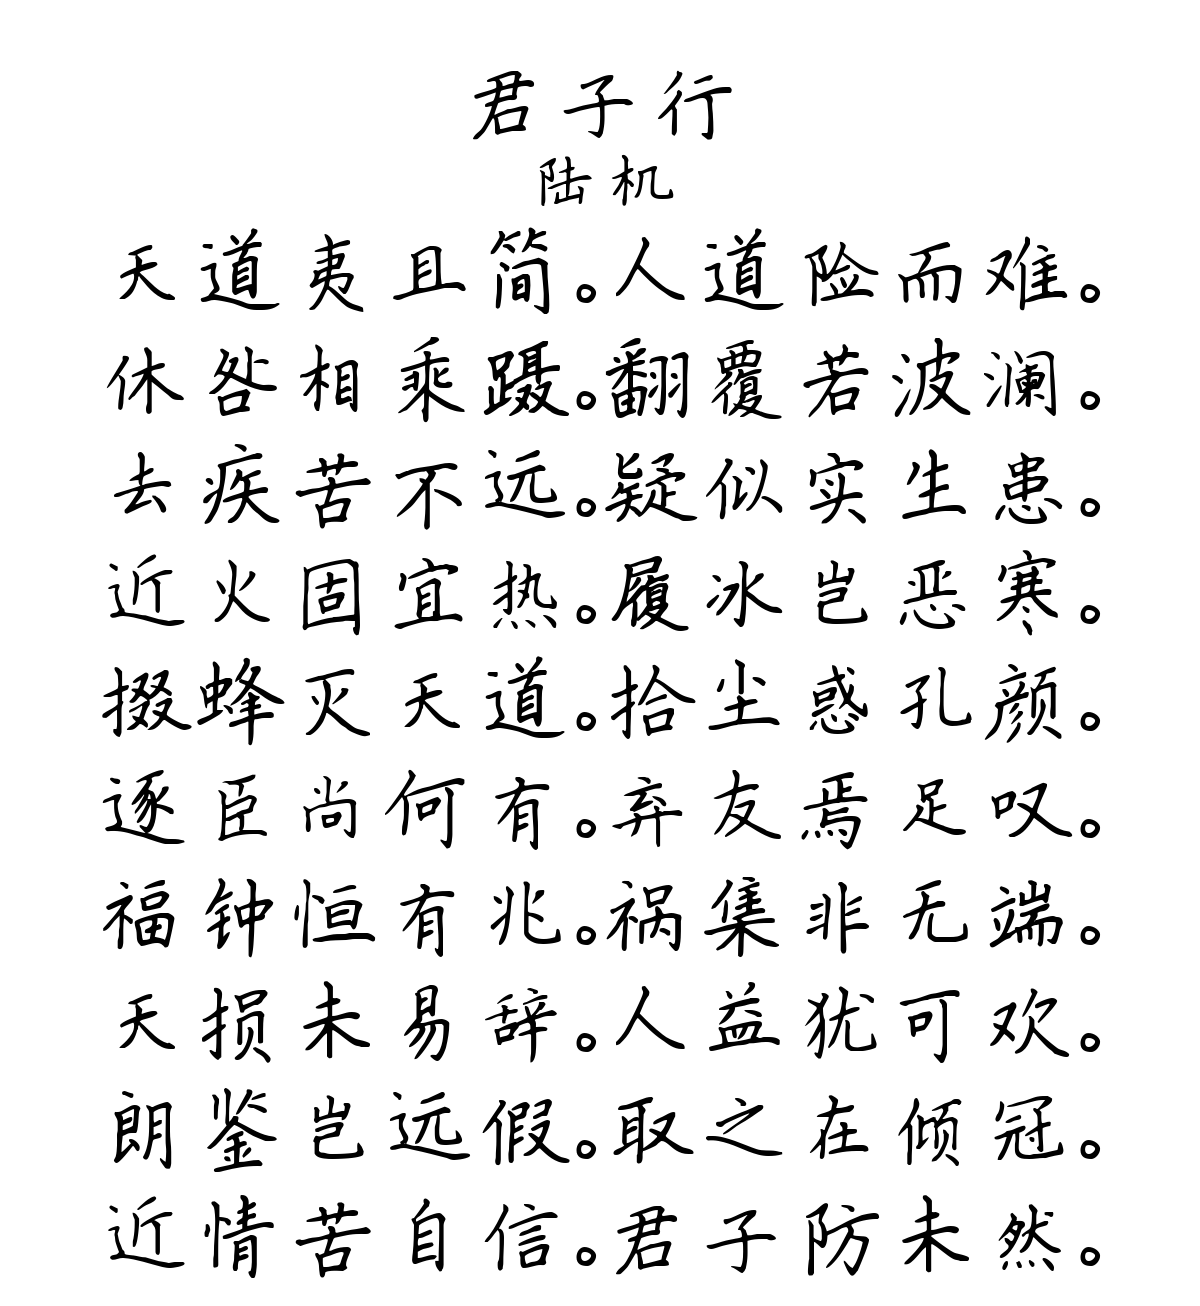 君子行
陆机
天道夷且简。人道险而难。
休咎相乘蹑。翻覆若波澜。
去疾苦不远。疑似实生患。
近火固宜热。履冰岂恶寒。
掇蜂灭天道。拾尘惑孔颜。
逐臣尚何有。弃友焉足叹。
福钟恒有兆。祸集非无端。
天损未易辞。人益犹可欢。
朗鉴岂远假。取之在倾冠。
近情苦自信。君子防未然。